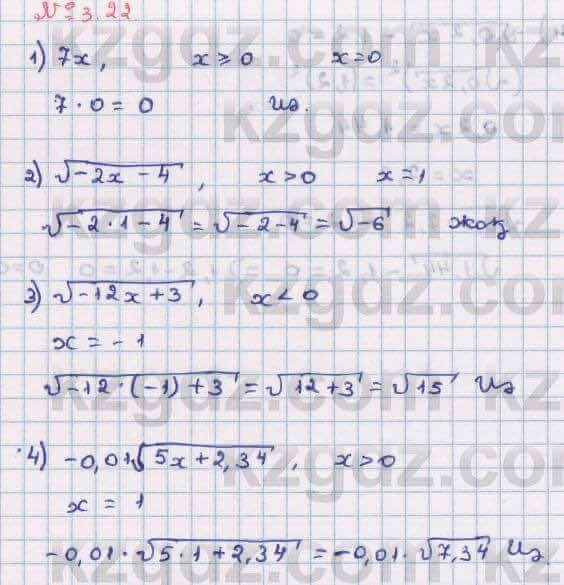 № 3.22
1) 7x, x ⩾ 0 x = 0
7 · 0 = 0 Иә.
2) √(-2x - 4), x > 0 x = 1
√(-2 · 1 - 4) = √(-2 - 4) = √(-6) жоқ
3) √(-12x + 3), x < 0
x = -1
√(-12 · (-1) + 3) = √(12 + 3) = √15 Иә
4) -0,01√(5x + 2,34), x > 0
x = 1
-0,01 · √(5 · 1 + 2,34) = -0,01 · √7,34 Иә.
kzgdz.com